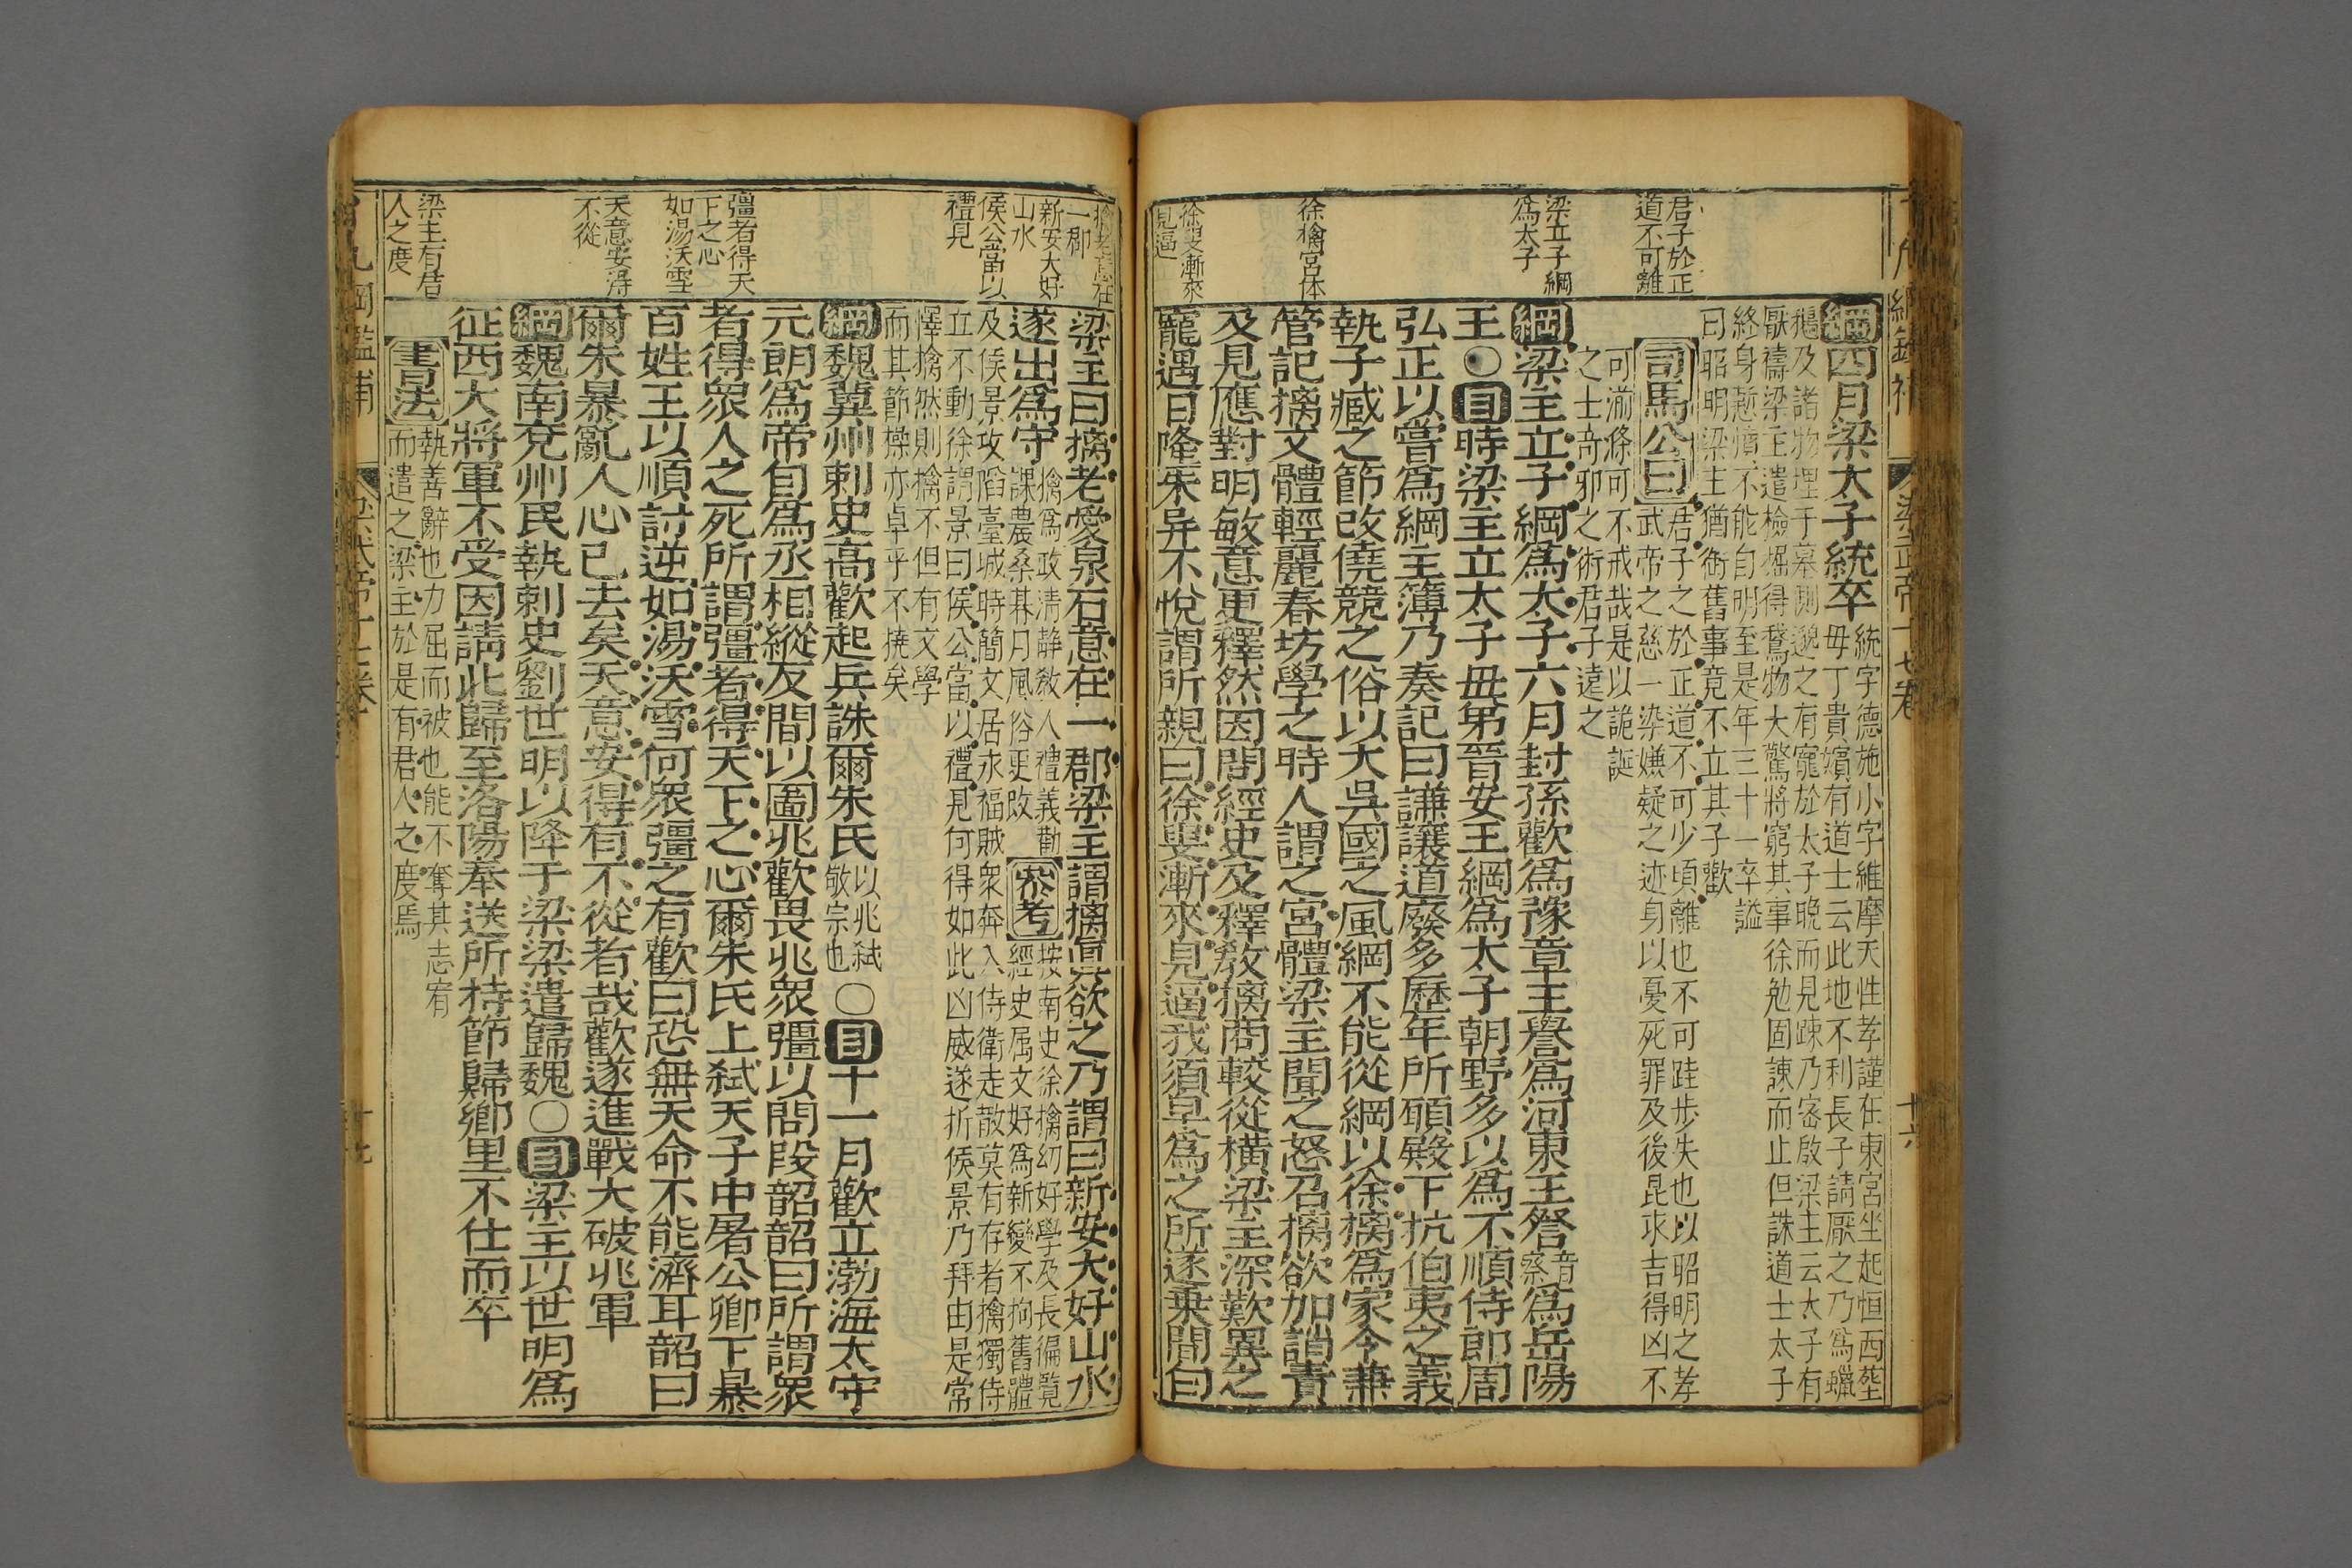 君子於正
道不可離
梁立子綱
爲太子
徐摛宮体
徐叟漸來
見逼
綱四月梁太子統卒
統字德施小字維摩天性孝謹在東宮坐起恒西
毋丁貴嬪有道士云此地不利長子請厭之乃爲蠟
鵝及諸物埋于墓側邈之有寵於太子晚而見疎乃密啟梁主云太子有
厭禱梁主遣檢掘得鵞物大驚將窮其事徐勉固諫而止但誅道士太子
終身慙憤不能自明至是年三十一卒諡
曰昭明梁主猶銜舊事竟不立其子歡
司馬公曰
君子之於正道不可少頃離也不可跬步失也以昭明之孝
武帝之慈一染嫌疑之迹身以憂死罪及後昆求吉得凶不
可湔滌可不戒哉是以詭誕
之士竒邪之術君子遠之
綱梁主立子綱爲太子六月封孫歡爲豫章王譽爲河東王詧音察爲岳陽
王○目時梁主立太子毋弟晉安王綱爲太子朝野多以爲不順侍郎周
弘正以嘗爲綱主簿乃奏記曰謙讓道廢多歷年所願殿下抗伯夷之義
執子臧之節改僥競之俗以大吳國之風綱不能從綱以徐摛爲家令兼
管記摛文體輕麗春坊學之時人謂之宮體梁主聞之怒召摛欲加誚責
及見應對明敏意更釋然因問經史及釋教摛商較從横梁主深歎異之
寵遇日隆朱异不悅謂所親曰徐叟漸來見逼我須早爲之所遂乗間白
梁武帝十七卷
十六
摛老意在
一郡
新安大好
山水
侯公當以
禮見
彊者得天
下之心
如湯沃雪
天意安得
不從
梁主有君
人之度
梁主曰摛老愛泉石意在一郡梁主謂摛眞欲之乃謂曰新安大好山水
遂出爲守
摛爲政清静敎人禮義勸
課農桑朞月風俗更改
叅考
按南史徐摛幼好學及長徧覽
經史属文好爲新變不拘舊體
及侯景攻陷臺城時簡文居永福賊衆奔入侍衛走散莫有存者摛獨侍
立不動徐謂景曰侯公當以禮見何得如此凶威遂折侯景乃拜由是常
憚摛然則摛不但有文學
而其節操亦卓乎不撓矣
綱魏冀州刺史高歡起兵誅爾朱氏
以兆弑
敬宗也
○目十一月歡立渤海太守
元朗爲帝自爲丞相縱反間以圖兆歡畏兆衆彊以問段韶韶曰所謂衆
者得衆人之死所謂彊者得天下之心爾朱氏上弑天子中屠公卿下暴
百姓王以順討逆如湯沃雪何衆彊之有歡曰恐無天命不能濟耳韶曰
爾朱暴亂人心已去矣天意安得有不從者哉歡遂進戰大破兆軍
綱魏南兖州民執刺史劉世明以降于梁梁遣歸魏○目梁主以世明爲
征西大將軍不受因請北歸至洛陽奉送所持節歸鄉里不仕而卒
書法
執善辭也力屈而被也能不奪其志宥
而遣之梁主於是有君人之度焉